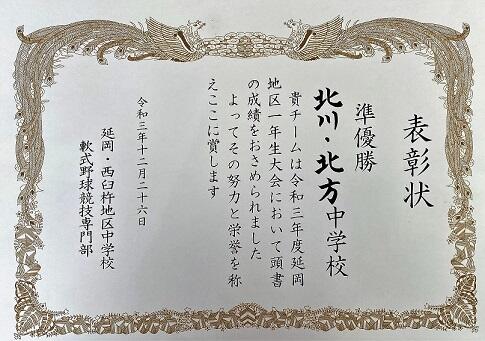 表彰状
準優勝
北川・北方中学校
貴チームは令和三年度延岡
地区一年生大会において頭書
の成績をおさめられました
よってその努力と栄誉を称
えここに賞します
令和三年十二月二十六日
延岡・西臼杵地区中学校
軟式野球競技専門部